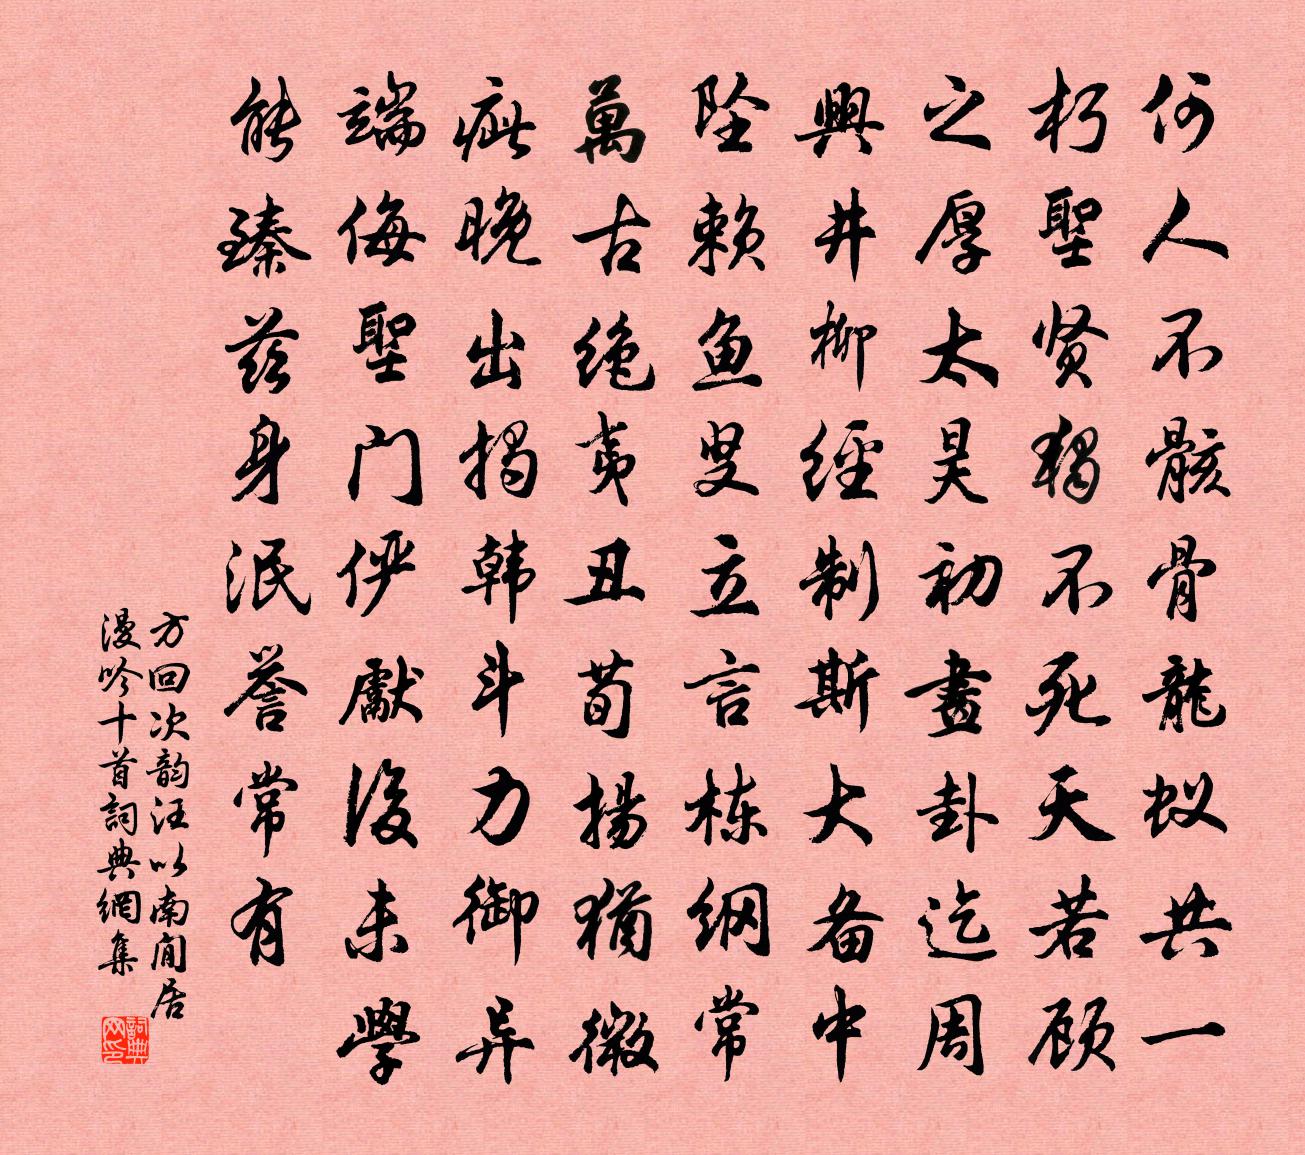 何人不骸骨龍蚁共一
朽聖贤獨不死天若顾
之厚太昊初畫卦迄周
興井柳經制斯大备中
坠赖鱼叟立言栋纲常
萬古绝夷丑荀揚猶微
疵晚出揭韩斗力御异
端侮聖门俨獻後未學
能臻兹身泯誉常有
方回次韵汪以南閒居
漫吟十首詞典網集
詞典网印